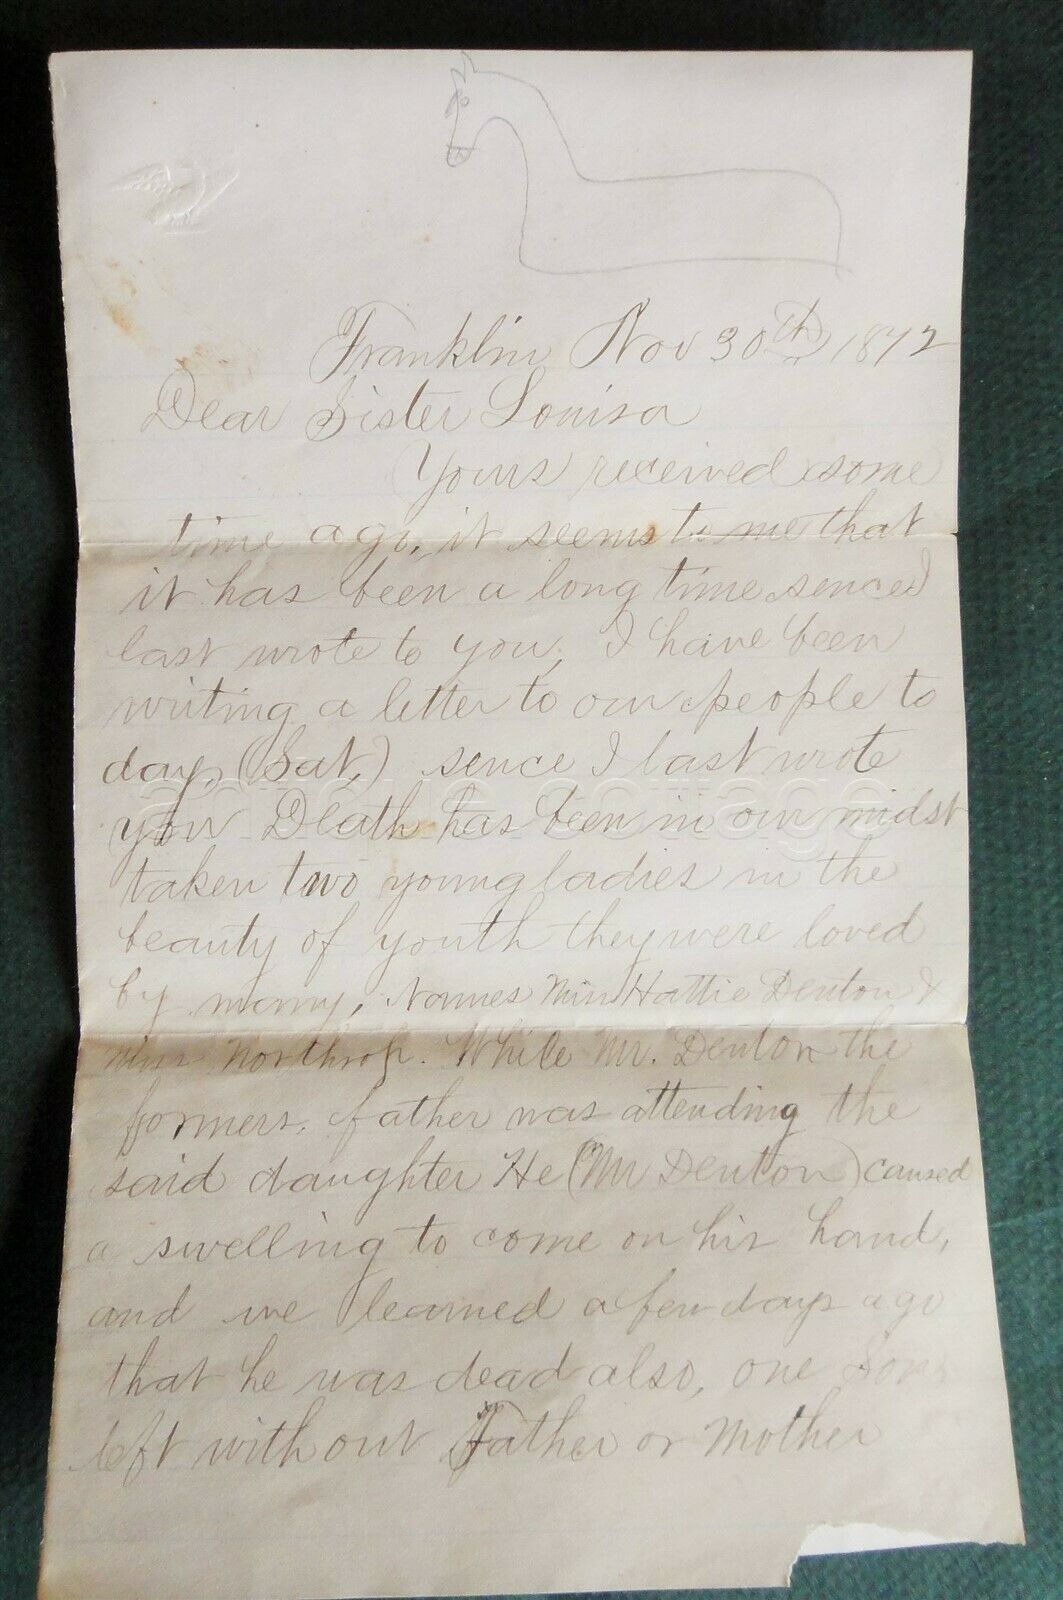 Franklin Nov 30th 1872
Dear Sister Louisa
Yours received some
time ago, it seems to me that
it has been a long time senced I
last wrote to you, I have been
writing a letter to our people to
day, (Sat,) sence I last wrote
you Death has been in our midst
taken two young ladies in the
beauty of youth they were loved
by many, Names Miss Hattie Denton &
Miss Northrop. While Mr. Denton the
formers, father was attending the
said daughter He (Mr Denton) caused
a swelling to come on his hand,
and we learned a few days ago
that he was dead also, one Son
left without Father or Mother